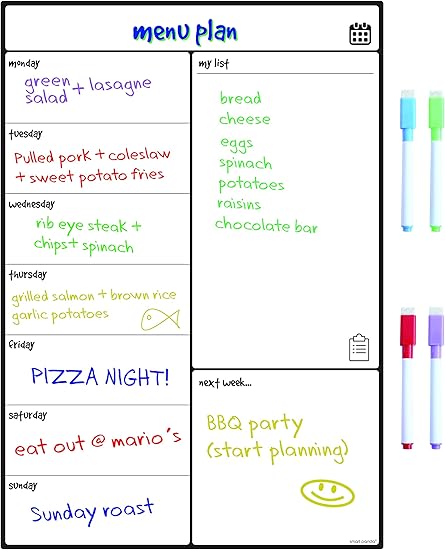 menu plan
monday
green
salad + lasagne
tuesday
Pulled pork + coleslaw
+ sweet potato fries
wednesday
rib eye steak +
chips + spinach
thursday
grilled salmon + brown rice
garlic potatoes
friday
PIZZA NIGHT!
saturday
eat out @ mario's
sunday
Sunday roast
my list
bread
cheese
eggs
spinach
potatoes
raisins
chocolate bar
next week...
BBQ party
(start planning)
smart panda